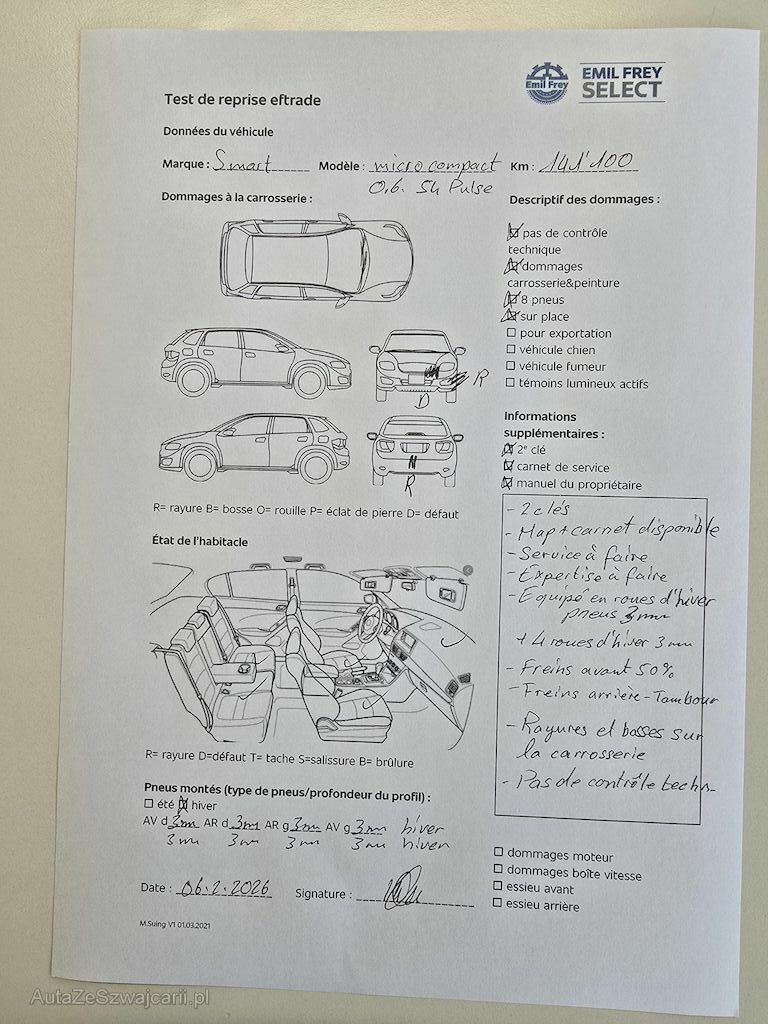 Emil Frey
EMIL FREY
SELECT
Test de reprise eftrade
Données du véhicule
Marque : Smart Modèle : micro compact Km : 141'100
0.6. S4 Pulse
Dommages à la carrosserie :
R
D
R
R= rayure B= bosse O= rouille P= éclat de pierre D= défaut
Descriptif des dommages :
pas de contrôle
technique
dommages
carrosserie&peinture
8 pneus
sur place
pour exportation
véhicule chien
véhicule fumeur
témoins lumineux actifs
Informations
supplémentaires :
2e clé
carnet de service
manuel du propriétaire
- 2 clés
- Map + carnet disponible
- Service à faire
- Expertise à faire
- Equipé en roues d'hiver
pneus 3mm
+ 4 roues d'hiver 3mm
- Freins avant 50%
- Freins arrière - Tambour
- Rayures et bosses sur
la carrosserie
- Pas de contrôle techn-
État de l'habitacle
R= rayure D=défaut T= tache S=salissure B= brûlure
Pneus montés (type de pneus/profondeur du profil) :
été hiver
AV d 3mm AR d 3mm AR g 3mm AV g 3mm hiver
3mm 3mm 3mm 3mm hiver
Date : 06.2.2026 Signature :
M.Suing V1 01.03.2021
dommages moteur
dommages boîte vitesse
essieu avant
essieu arrière
AutaZeSzwajcarii.pl